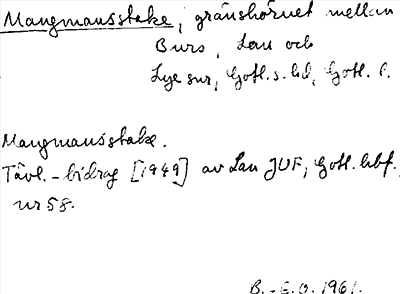 Mangmansstake, gränshörnet mellan
Burs, Lau och
Lye snr, Gotl. s. hd, Gotl. l.
Mangmansstake.
Tävl.-bidrag [1949] av Lau JUF, Gotl. hbf.
nr 58.
B.-E.O. 1961.